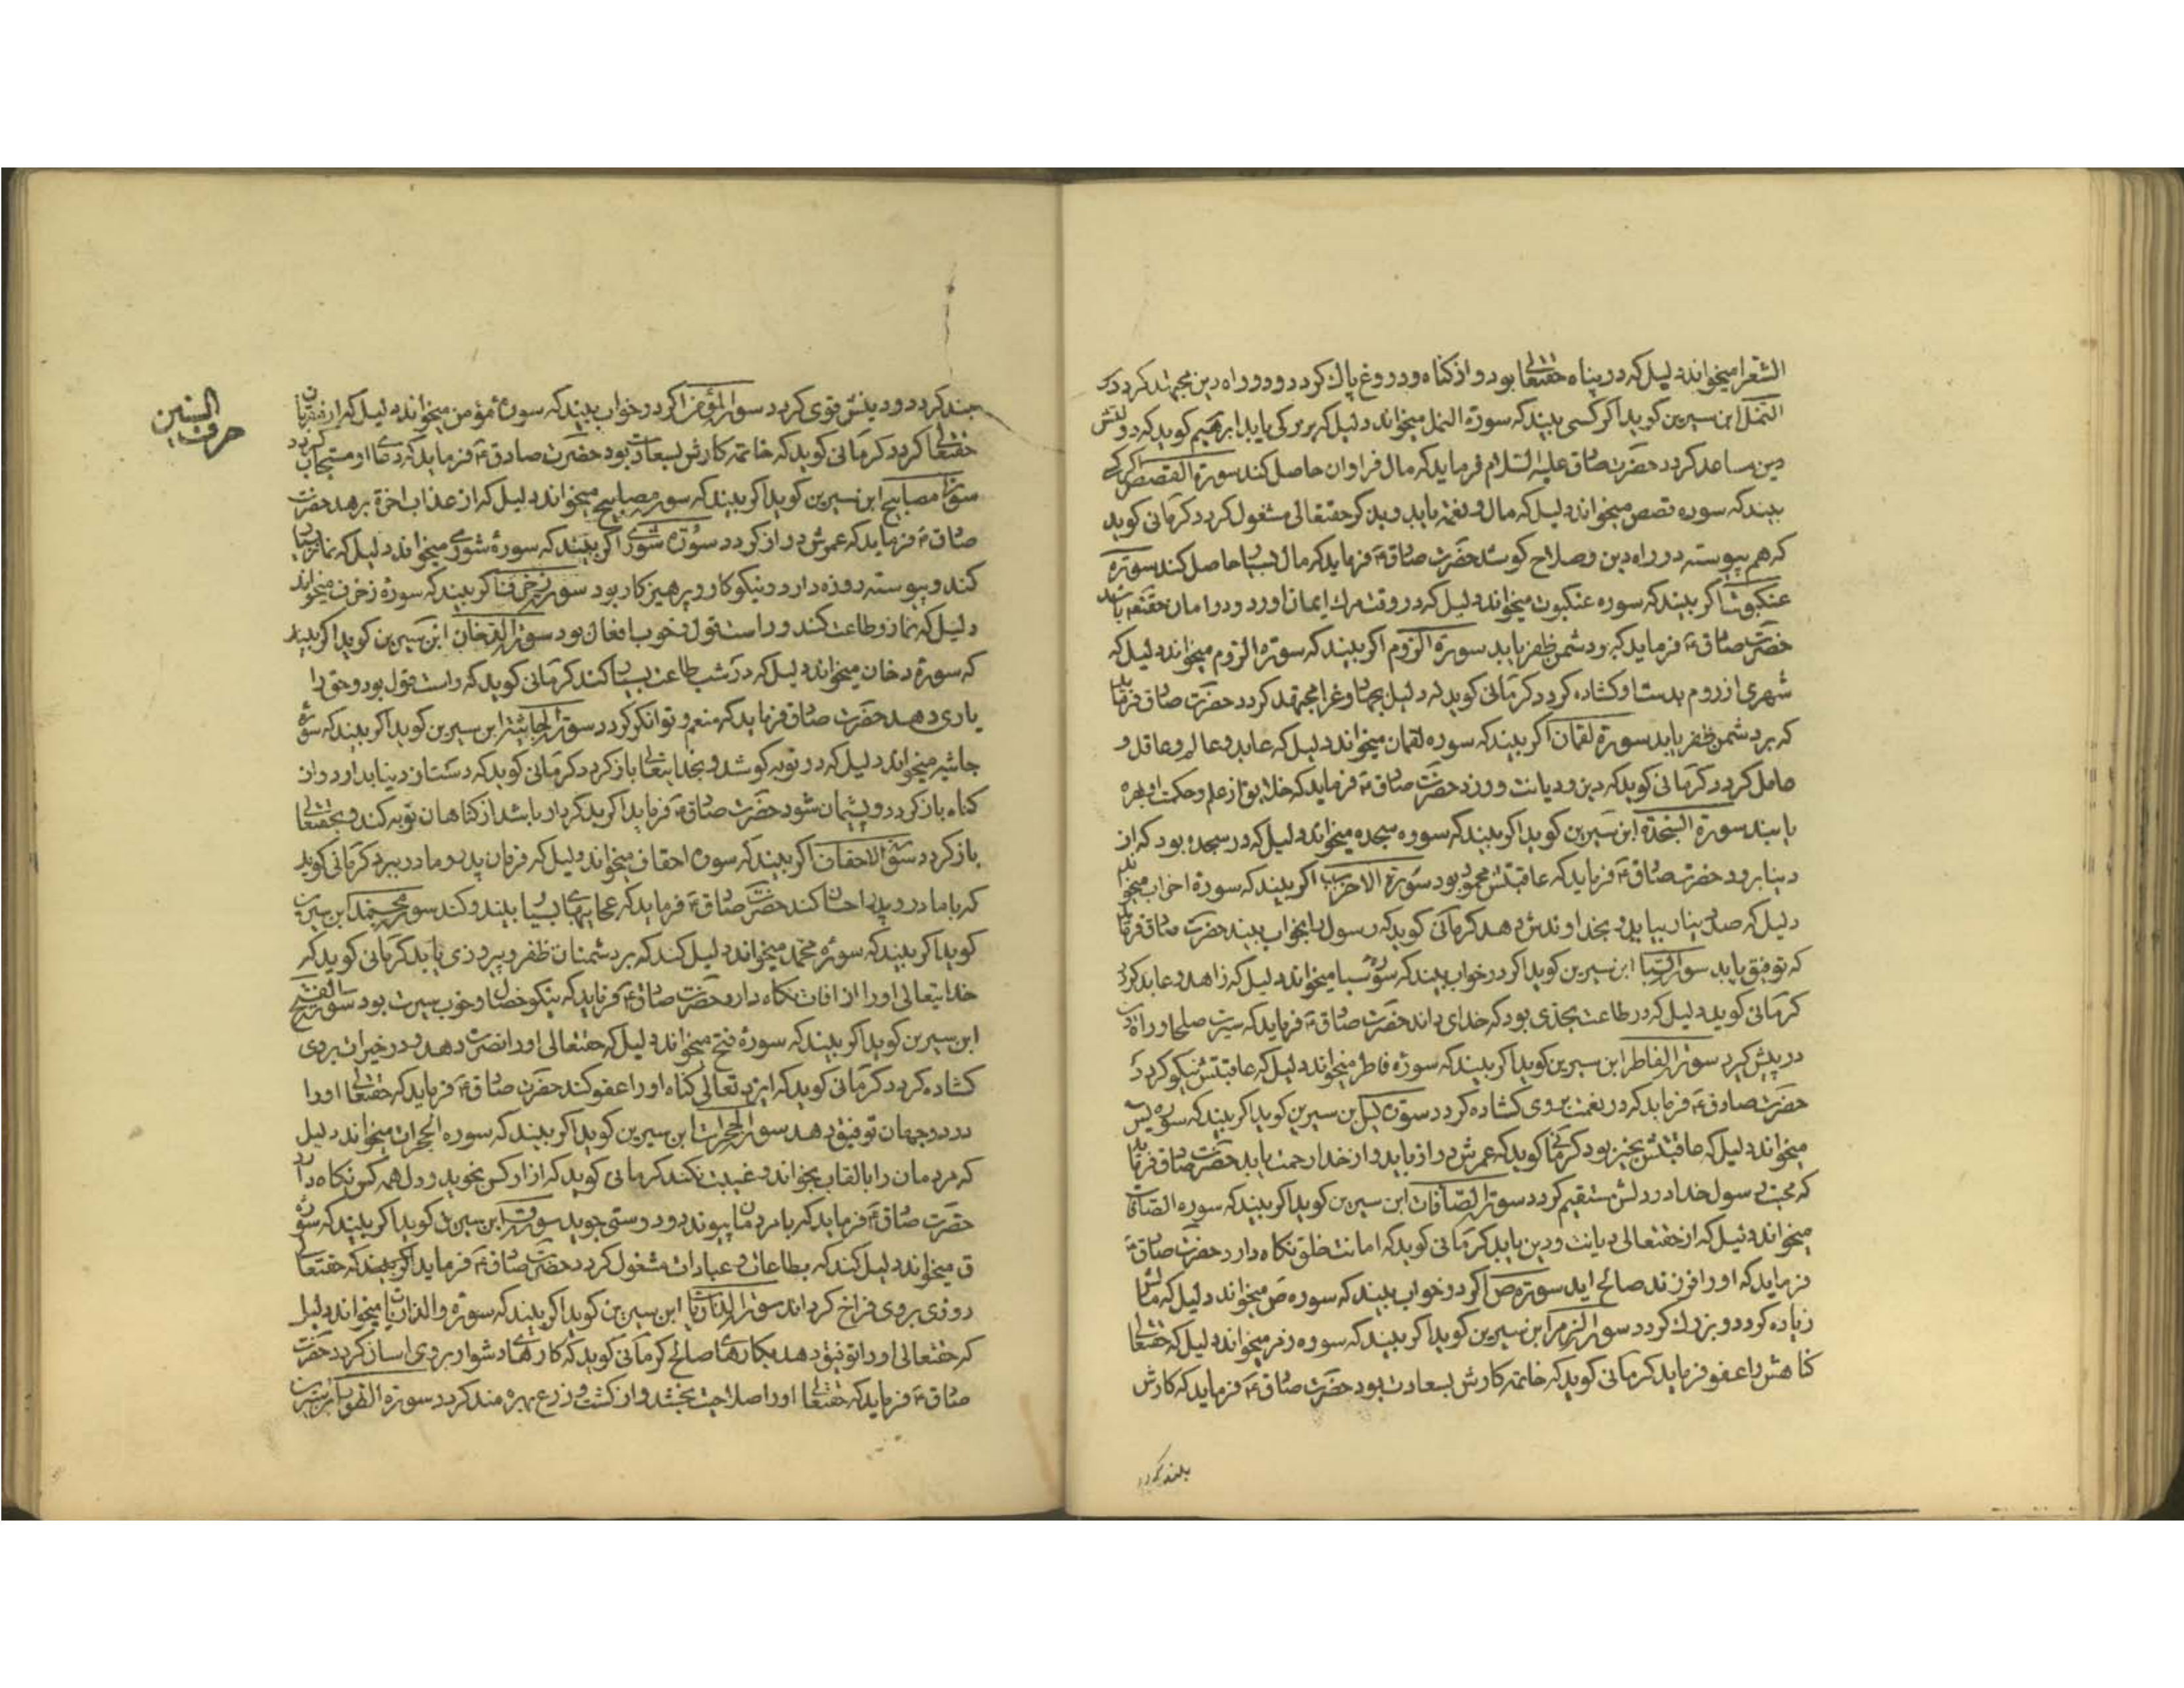 الشعرا میخواند دلیل که در پناه حقتعالی بود و از کناه و دروغ پاك کردد و در راه دین مجتهد کردد
النمل ابن سیرین کوید اکر کسی بیند که سورة النمل میخواند دلیل که بزرکی یابد ابرهیم کوید که دولتش
دین مساعد کردد حضرت صادق علیه السلام فرماید که مال فراوان حاصل کند سورة القصص اکر کسی
بیند که سوره قصص میخواند دلیل که مال و نعمة یابد و بذکر حقتعالی مشغول کردد کرمانی کوید
که هم پیوسته در راه دین و صلاح کوشد حضرت صادق ع فرماید که مال بسیار حاصل کند سورة
عنکبوت اکر بیند که سوره عنکبوت میخواند دلیل که در وقت مرك ایمان اورد و در امان حقتعالی باشد
حضرت صادق ع فرماید که بر دشمن ظفر یابد سورة الروم اکر بیند که سورة الروم میخواند دلیل که
شهری از روم بدست او کشاده کردد کرمانی کوید که دلیل بجهاد و غزا مجتهد کردد حضرت صادق فرماید
که بر دشمن ظفر یابد سورة لقمان اکر بیند که سوره لقمان میخواند دلیل که عابد و عالم و عاقل و
حامل کردد کرمانی کوید که دین و دیانت ورزد حضرت صادق ع فرماید که خلایق از علم و حکمت او بهره
یابند سورة السجدة ابن سیرین کوید اکر بیند که سوره سجده میخواند دلیل که در سجده بود که از
دینا برود حضرت صادق ع فرماید که عاقبتش محمود بود سورة الاحزاب اکر بیند که سورة احزاب میخواند
دلیل که صد دینار بیابد و بخداوندش دهد کرمانی کوید که رسول را بخواب بیند حضرت صادق فرماید
که توفیق یابد سورة السبا ابن سیرین کوید اکر در خواب بیند که سورۀ سبا میخواند دلیل که زاهد و عابد کردد
کرمانی کوید دلیل که در طاعت بجدی بود که خدای داند حضرت صادق ع فرماید که سیرت صلحا و راه دین
در پیش کیرد سورة الفاطر ابن سیرین کوید اکر بیند که سورۀ فاطر میخواند دلیل که عاقبتش نیکو کردد
حضرت صادق ع فرماید که در نعمت بروی کشاده کردد سورة یس ابن سیرین کوید اکر بیند که سورۀ یس
میخواند دلیل که عاقبتش بخیر بود کرمانی کوید که عمرش دراز یابد و از خدا رحمت یابد حضرت صادق فرماید
که محبت رسول خدا در دلش مستقیم کردد سورة الصافات ابن سیرین کوید اکر بیند که سوره الصافات
میخواند دلیل که از حقتعالی دیانت و دین یابد کرمانی کوید که امانت خلق نکاه دارد حضرت صادق ع
فرماید که او را فرزند صالح اید سوره ص اکر در خواب بیند که سوره ص میخواند دلیل که مالش
زیاده کردد و بزرك کردد سورة الزمر ابن سیرین کوید اکر بیند که سوره زمر میخواند دلیل که حقتعالی
کناهش را عفو فرماید کرمانی کوید که خاتمه کارش بسعادت بود حضرت صادق ع فرماید که کارش
بلند کردد
السین
حرف
کردد و دینش قوی کردد سورة المؤمن اکر در خواب بیند که سورۀ مؤمن میخواند دلیل که از
حقتعالی کردد کرمانی کوید که خاتمه کارش بسعادت بود حضرت صادق ع فرماید که دعای او مستجاب کردد
سورة مصابیح ابن سیرین کوید اکر بیند که سوره مصابیح میخواند دلیل که از عذاب اخرة برهد حضرت
صادق ع فرماید که عمرش دراز کردد سورة شوری اکر بیند که سورۀ شوری میخواند دلیل که نماز بسیار
کند و پیوسته روزه دارد و نیکوکار و پرهیزکار بود سورة زخرف اکر بیند که سورۀ زخرف میخواند
دلیل که نماز و طاعت کند و راست قول و خوب افعال بود سورة الدخان ابن سیرین کوید اکر بیند
که سورة دخان میخواند دلیل که در شب طاعت بسیار کند کرمانی کوید که راست قول بود و حق را
یاری دهد حضرت صادق فرماید که منعم و توانکر کردد سورة الجاثیة ابن سیرین کوید اکر بیند که سورۀ
جاثیه میخواند دلیل که در توبه کوشد و بخدایتعالی باز کردد کرمانی کوید که دست از دینا بدارد و از
کناه باز کردد و پشیمان شود حضرت صادق ع فرماید اکر بدکردار باشد از کناهان توبه کند و بحقتعالی
باز کردد سورة الاحقاف اکر بیند که سورۀ احقاف میخواند دلیل که فرمان پدر و مادر ببرد کرمانی کوید
که با مادر و پدر احسان کند حضرت صادق ع فرماید که عجایبهای بسیار بیند سورة محمد ابن سیرین
کوید اکر بیند که سورۀ محمد میخواند دلیل کند که بر دشمنان ظفر و پیروزی یابد کرمانی کوید که
خدایتعالی او را از افات نکاه دارد حضرت صادق ع فرماید که نیکو خصال و خوب سیرت بود سورة الفتح
ابن سیرین کوید اکر بیند که سورۀ فتح میخواند دلیل که حقتعالی او را نصرت دهد و در خیرات بروی
کشاده کردد کرمانی کوید که ایزد تعالی کناه او را عفو کند حضرت صادق ع فرماید که حقتعالی او را
در دو جهان توفیق دهد سورة الحجرات ابن سیرین کوید اکر بیند که سوره الحجرات میخواند دلیل
که مردمان را بالقاب بخواند و غیبت نکند کرمانی کوید که ازار کس نجوید و دل همه کس نکاه دارد
حضرت صادق ع فرماید که با مردمان پیوندد و دوستی جوید سورة ق ابن سیرین کوید اکر بیند که سورۀ
ق میخواند دلیل کند که بطاعات و عبادات مشغول کردد حضرت صادق ع فرماید که حقتعالی
روزی بروی فراخ کرداند سورة الذاریات ابن سیرین کوید اکر بیند که سورۀ والذاریات میخواند دلیل
که حقتعالی او را توفیق دهد بکارهای صالح کرمانی کوید که کارهای دشوار بروی اسان کردد حضرت
صادق ع فرماید که حقتعالی او را صلاحیت بخشد و از کشت و زرع بهره مند کردد سورة الطور ابن سیرین